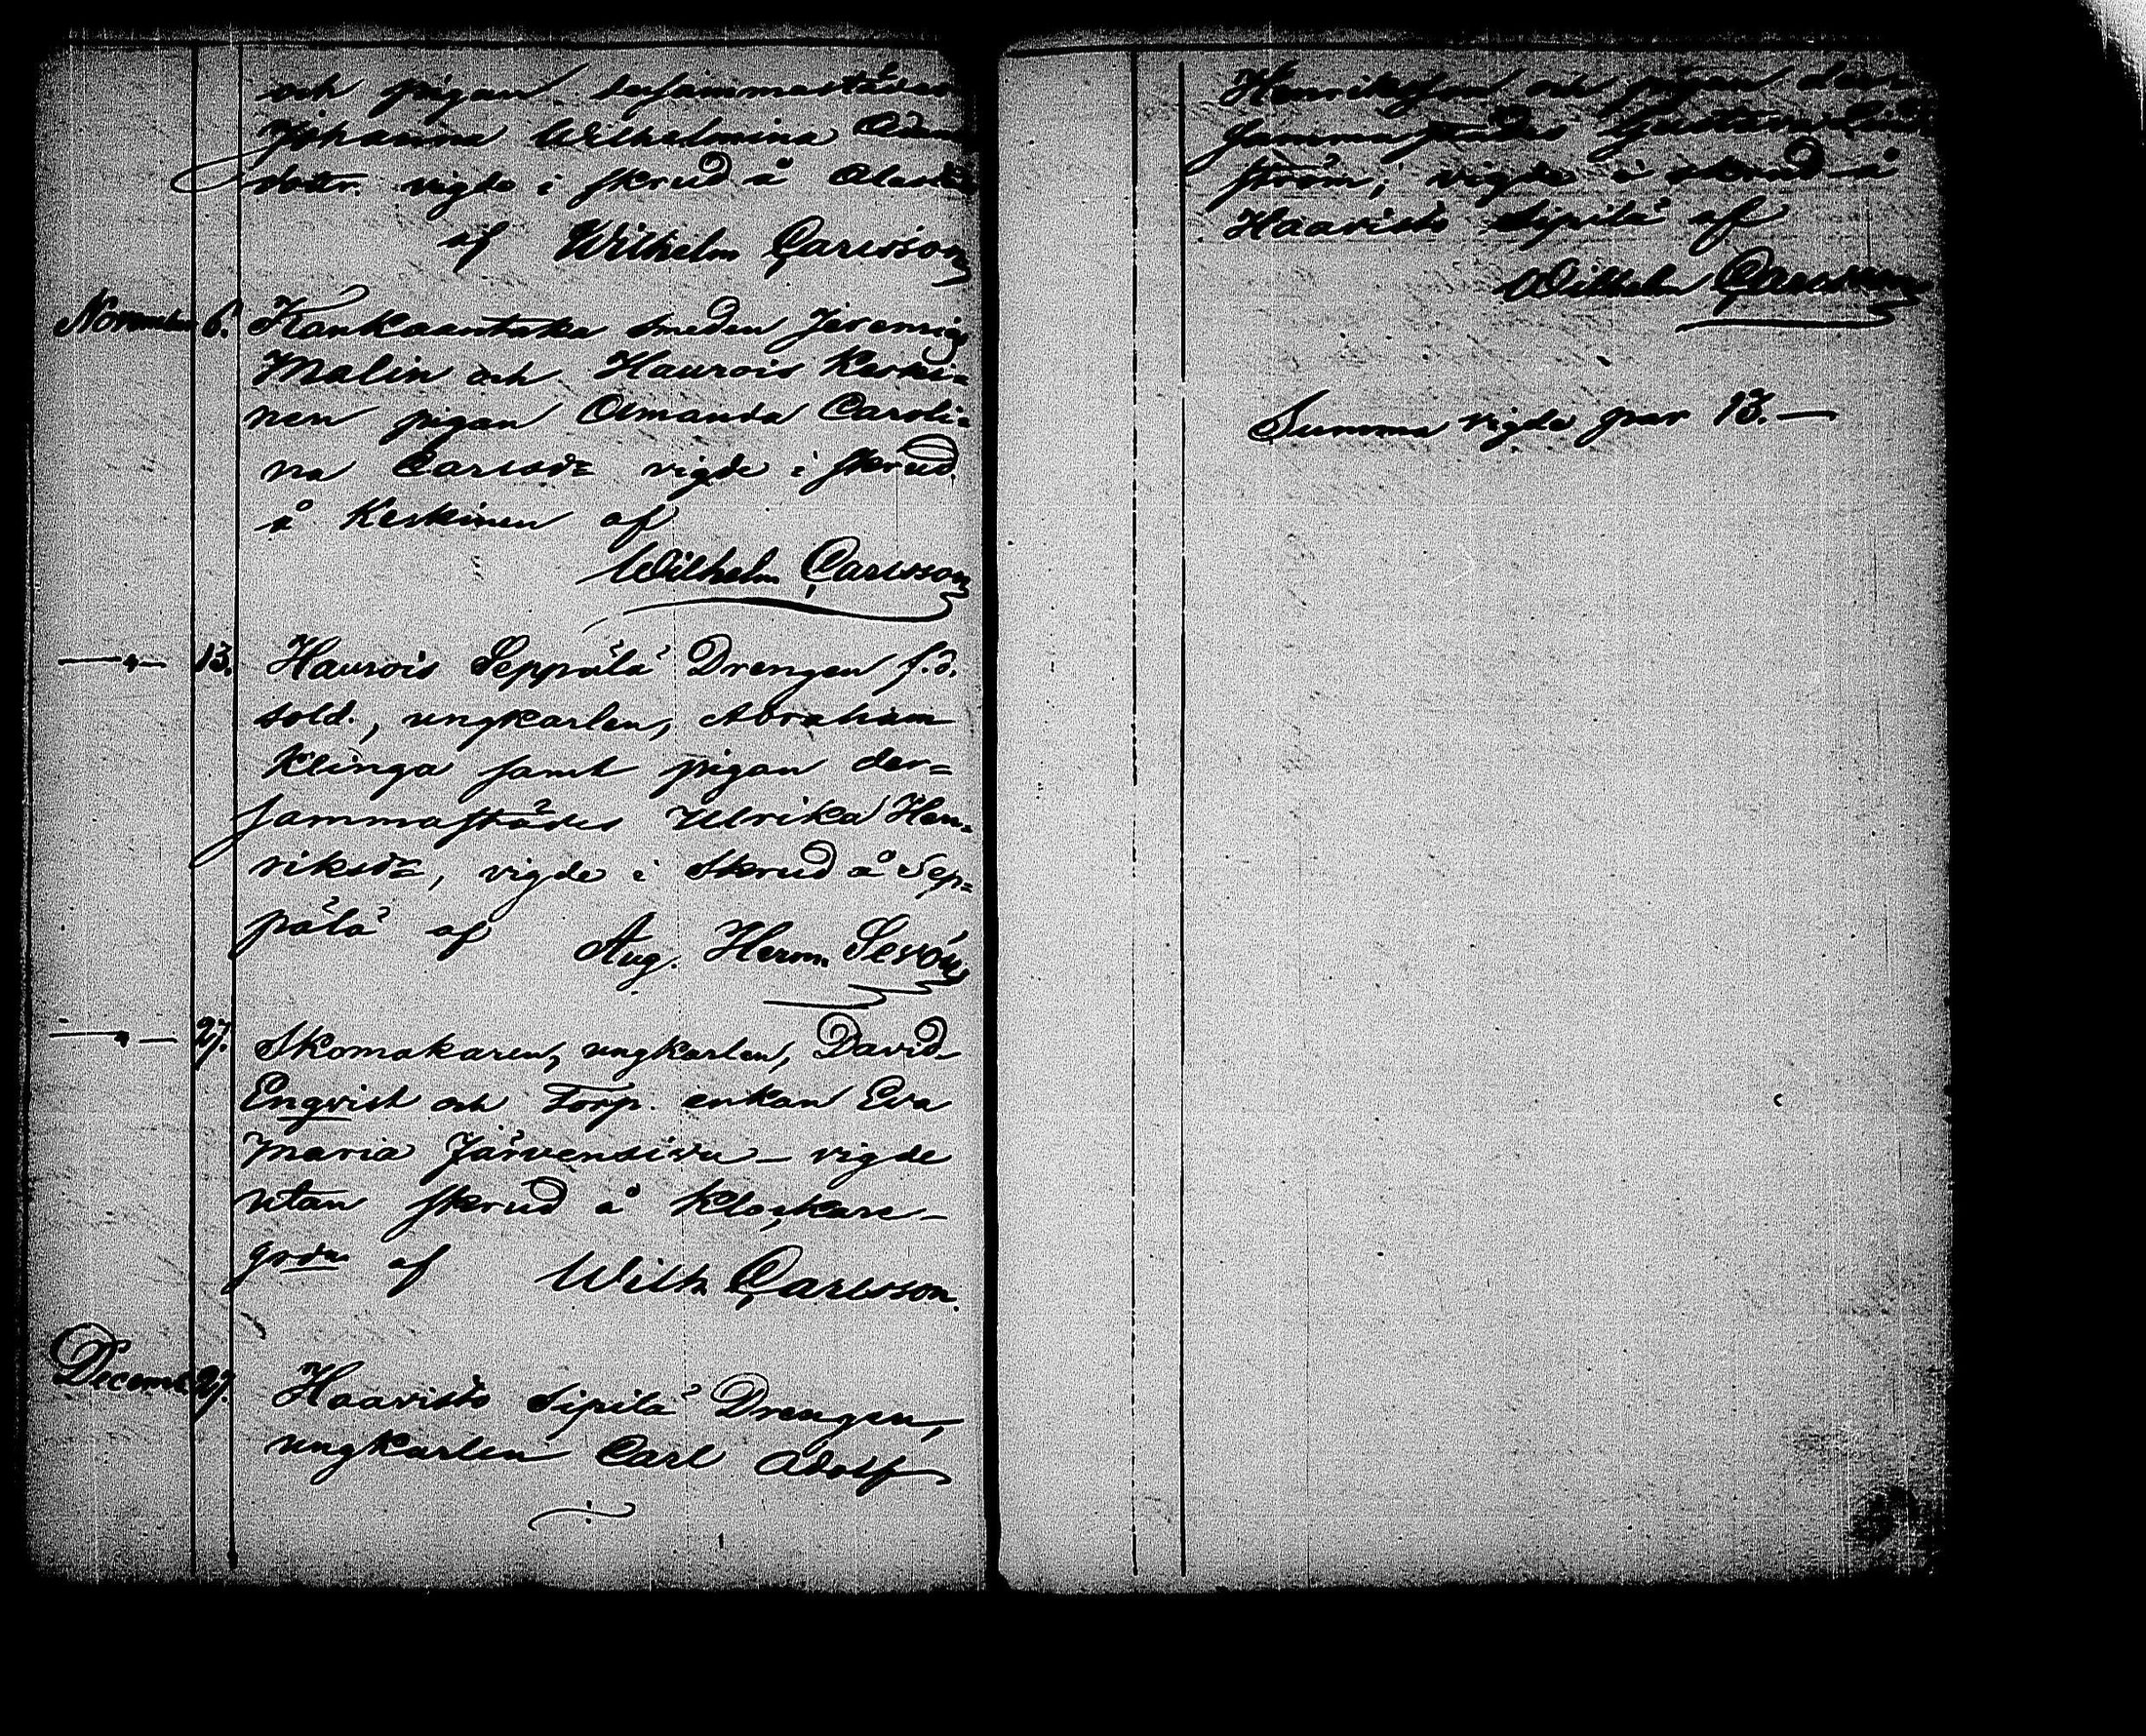 och pigan dersammastädes
Johanna Wilhelmina Adams
dottr. vigde i skrud å
af Wilhelm Carlsson
November 6. Kankaantaka smeden Jeremias
Malin och Haurois Keski=
nen pigan Amanda Caroli=
na Carlsdr vigde i skrud
å Keskinen af
Wilhelm Carlsson
—„— 13. Haurois Seppälä Drengen f.d.
sold., ungkarlen, Abraham
Klinga samt pigan der=
sammastädes Ulrika Hen=
riksdr, vigde i skrud å Sep=
pälä af Aug. Herm. Sevón
—„— 27. Skomakaren, ungkarlen, David
Engvist och Torp. enkan Eva
Maria Järvensivu – vigde
utan skrud å Klockare–
grdn af Wilh Carlsson.
Decemb. 27. Haavisto Sipilä Drengen,
ungkarlen Carl Adolf
Henriksson och pigan der=
sammastädes Gustava Lind
ström, vigde i skrud å
Haavisto Sipilä af
Wilhelm Carlsson
Summa vigde par 13.—